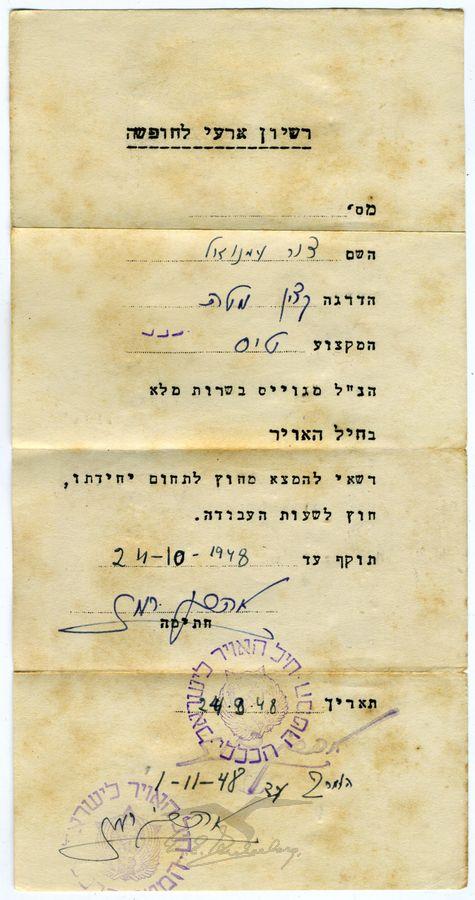 רשיון ארעי לחופשה
מס'
השם צור עמנואל
הדרגה קצין מטה
המקצוע טיס
הנ"ל מגוייס בשרות מלא
בחיל האויר
רשאי להמצא מחוץ לתחום יחידתו,
חוץ לשעות העבודה.
תוקף עד 24-10-1948
אהרן רמז
חתימה
תאריך 24.9.48
חיל האויר לישראל
המטה הכללי
עד 1-11-48
אהרן רמז
האויר לישראל